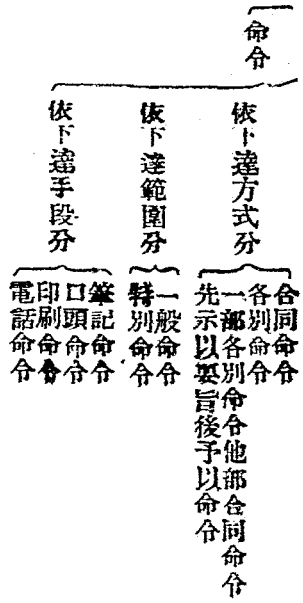 命令
依下達方式分
合同命令
各別命令
一部各別命令他部合同命令
先示以要旨後予以命令
依下達範圍分
一般命令
特別命令
依下達手段分
筆記命令
口頭命令
印刷命令
電話命令